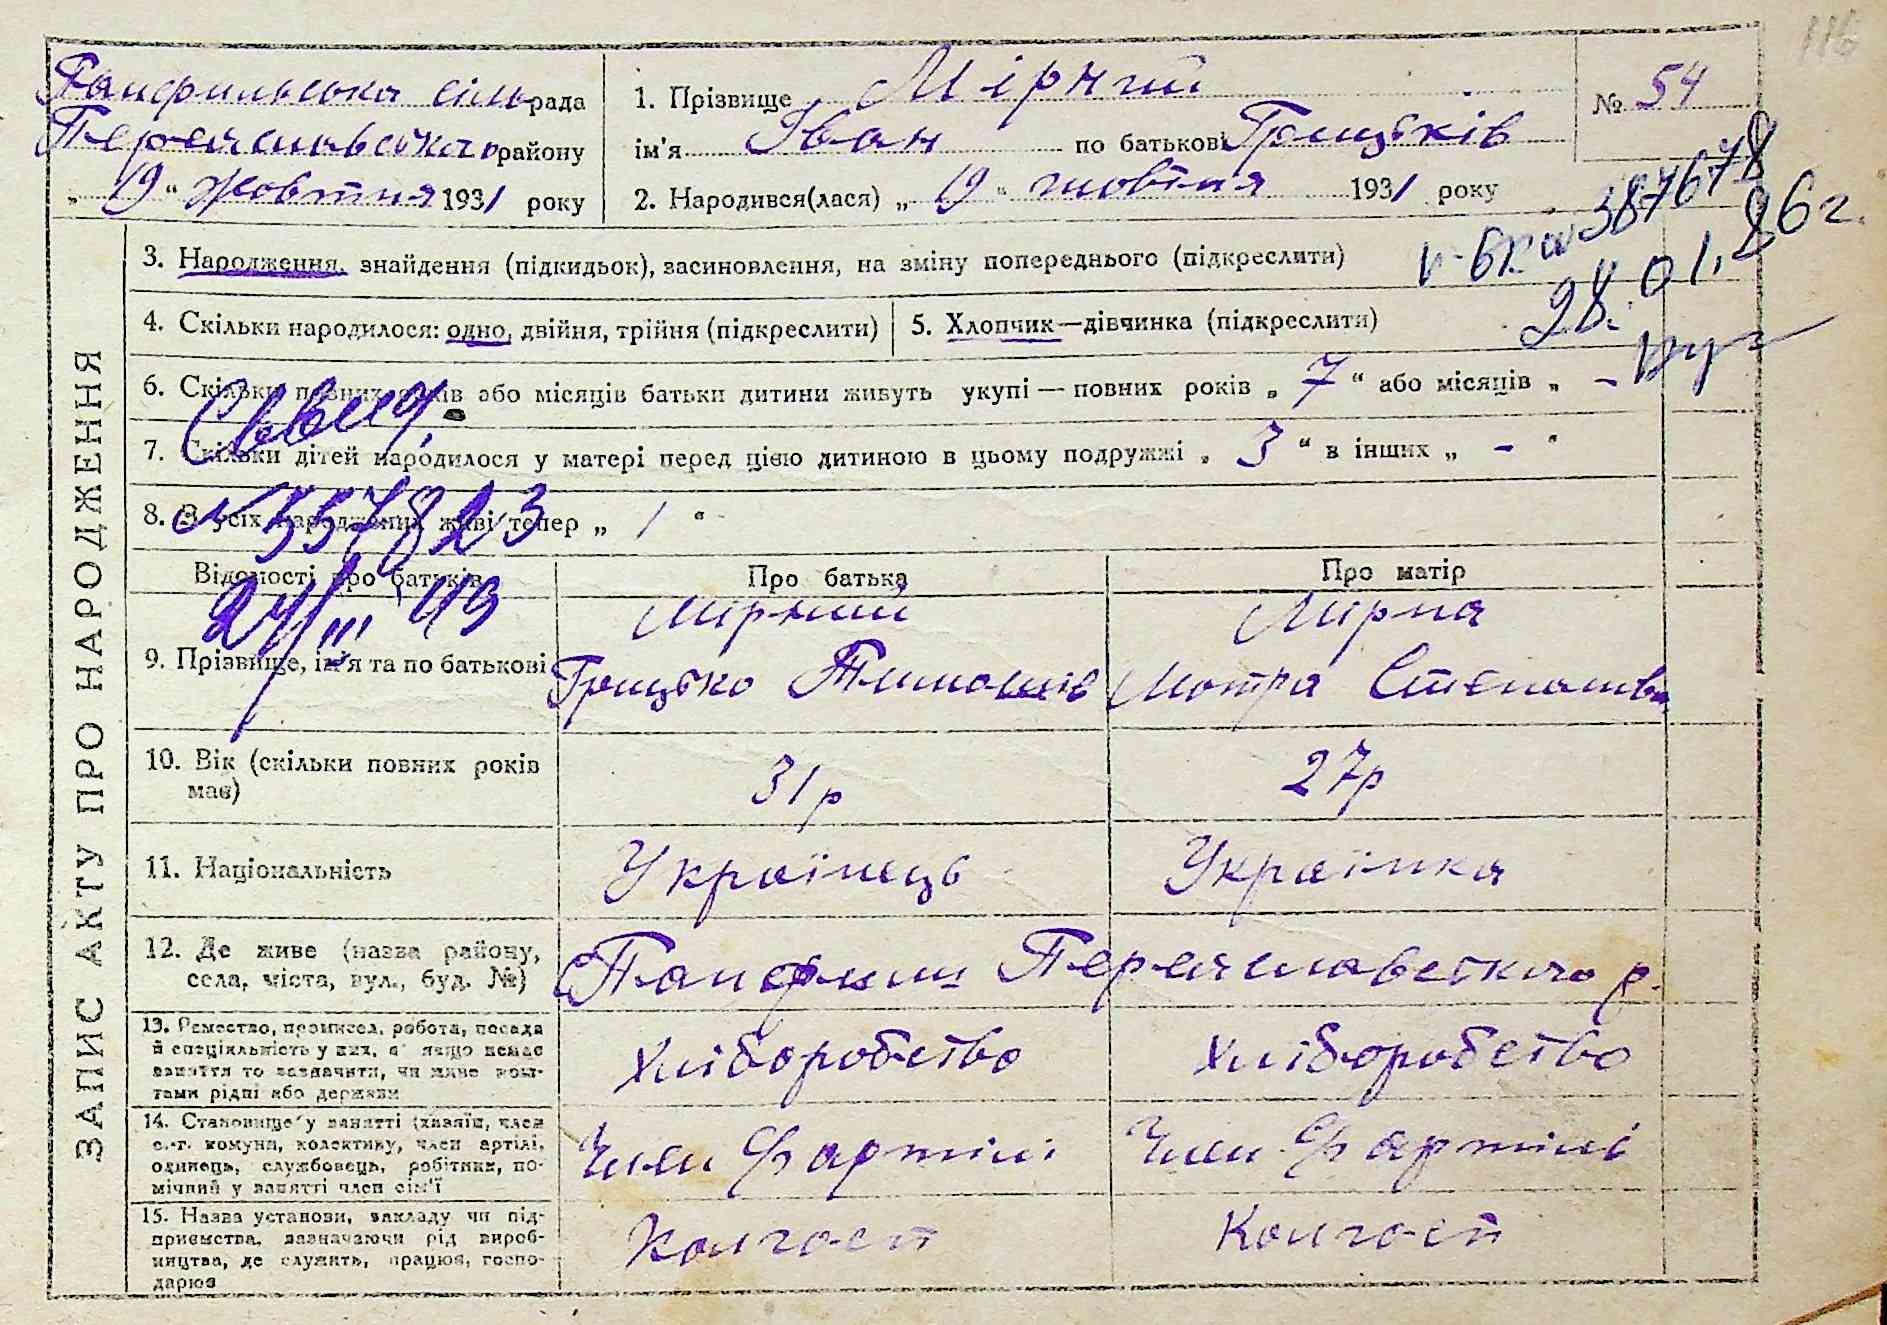 116
Панфильська сільрада
Переяславського району
„19" жовтня 1931 року
1. Прізвище Мірний
ім'я Іван по батькові Грицьків
2. Народився(лася) „19" жовтня 1931 року
№ 54
387678
28.01.86г.
ЗАПИС АКТУ ПРО НАРОДЖЕННЯ
3. Народження, знайдення (підкидьок), засиновлення, на зміну попереднього (підкреслити)
4. Скільки народилося: одно, двійня, трійня (підкреслити)
5. Хлопчик—дівчинка (підкреслити)
6. Скільки повних років або місяців батьки дитини живуть укупі — повних років „7" або місяців „ -
7. Скільки дітей народилося у матері перед цією дитиною в цьому подружжі „3" в інших „ - "
8. З усіх народжених живі тепер „ 1 "
№ 357823
24/III 43
Відомості про батьків
Про батька
Про матір
9. Прізвище, ім'я та по батькові
Мірний
Грицько Тимошів
Мірна
Мотра Степанівна
10. Вік (скільки повних років має)
31р
27р
11. Національність
Українець
Українка
12. Де живе (назва району,
села, міста, вул., буд. №)
с Панфили Переяславського р.
13. Ремество, промисел, робота, посада
й спеціяльність у них, а якщо немає
заняття то зазначити, чи живе кош-
тами рідні або держави
Хліборобство
Хліборобство
14. Становище у занятті (хазяїн, член
с.-г. комуни, колективу, член артілі,
одинець, службовець, робітник, по-
мічний у занятті член сім'ї
Член артілі
Член артілі
15. Назва установи, закладу чи під-
приємства, зазначаючи рід вироб-
ництва, де служить, працює, госпо-
дарює
Колгосп
Колгосп